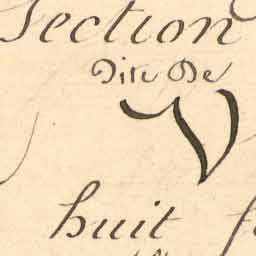 Section
Dite De
V
huit